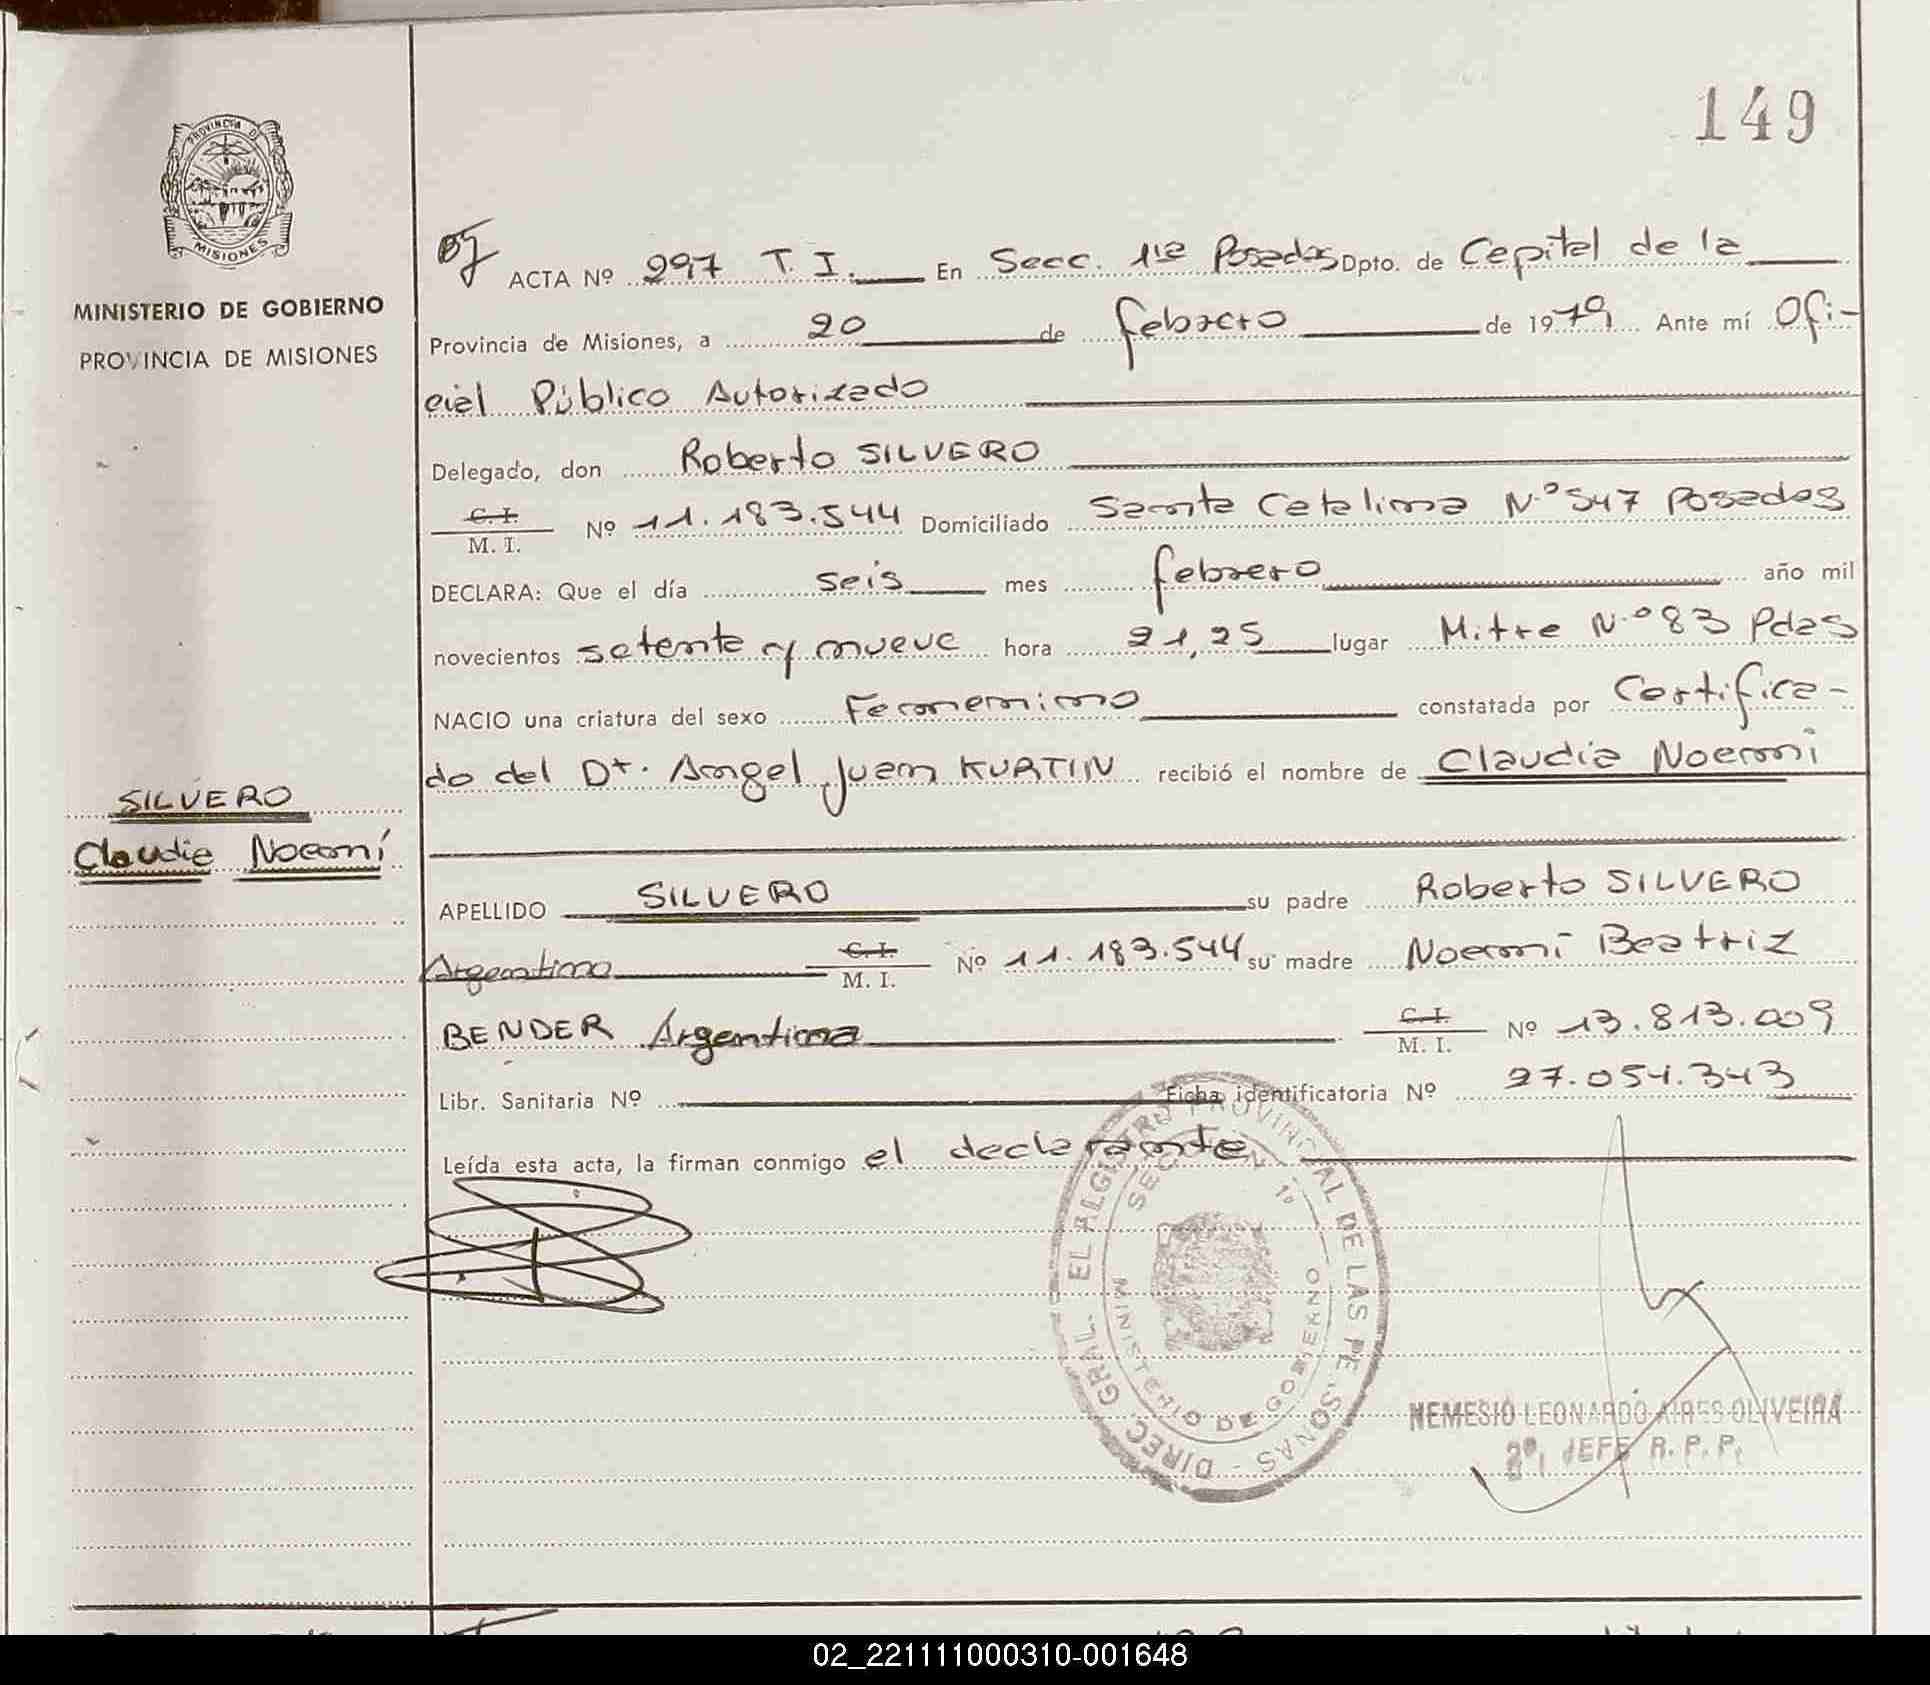 149
PROVINCIA DE
MISIONES
MINISTERIO DE GOBIERNO
PROVINCIA DE MISIONES
ACTA Nº 297 T. I. En Secc. 1ra Posadas Dpto. de Capital de la
Provincia de Misiones, a 20 de febrero de 1979 Ante mí Ofi-
cial Público Autorizado
Delegado, don Roberto SILVERO
C. I.
M. I. Nº 11.183.544 Domiciliado Santa Catalina N.º 547 Posadas
DECLARA: Que el día seis mes febrero año mil
novecientos setenta y nueve hora 21,25 lugar Mitre N.º 83 Pdas
NACIO una criatura del sexo Femenino constatada por Certifica-
do del Dr. Angel Juan KURTIN recibió el nombre de Claudia Noemi
SILVERO
Claudia Noemí
APELLIDO SILVERO su padre Roberto SILVERO
Argentino C. I.
M. I. Nº 11.183.544 su madre Noemi Beatriz
BENDER Argentina C. I.
M. I. Nº 13.813.009
Libr. Sanitaria Nº Ficha identificatoria Nº 27.054.343
Leída esta acta, la firman conmigo el declarante
DIREC. GRAL. EL ALGISTRO PROVINCIAL DE LAS PE SONAS
SECCION 1º
MINISTERIO DE GOBIERNO
NEMESIO LEONARDO AIRES OLIVEIRA
2º, JEFE R. P. P.
02_221111000310-001648